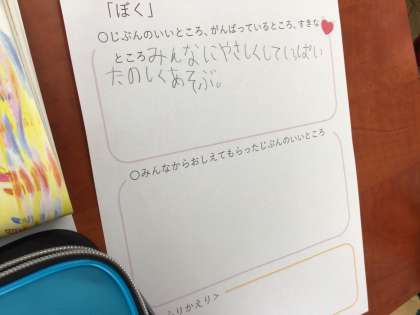 「ぼく」
○じぶんのいいところ、がんばっているところ、すきな
ところみんなにやさしくしていっぱい
たのしくあそぶ。
○みんなからおしえてもらったじぶんのいいところ
ふりかえり>